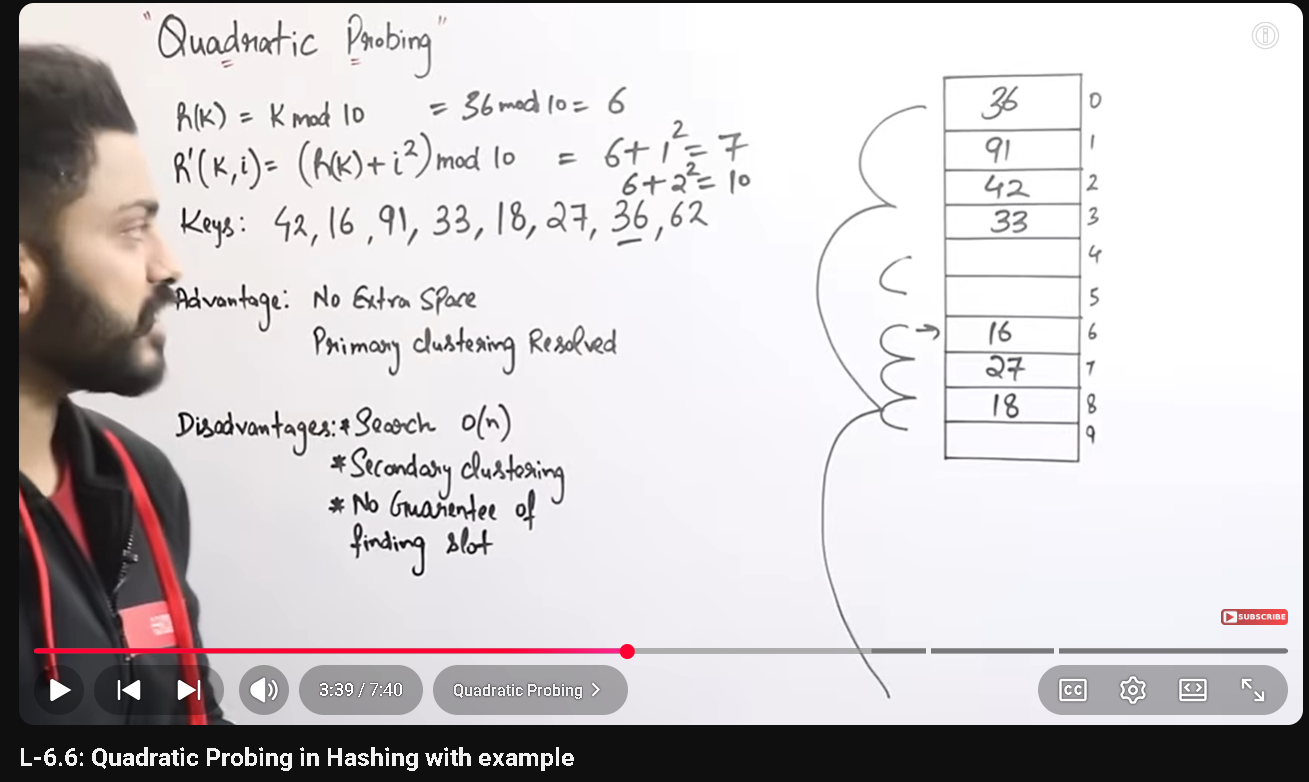 "Quadratic Probing"
h(K) = K mod 10 = 36 mod 10 = 6
h'(K,i) = (h(K) + i²) mod 10 = 6 + 1² = 7
6 + 2² = 10
Keys: 42, 16, 91, 33, 18, 27, 36, 62
Advantage: No Extra Space
Primary clustering Resolved
Disadvantages: * Search O(n)
* Secondary clustering
* No Guarentee of
finding slot
36 0
91 1
42 2
33 3
4
5
16 6
27 7
18 8
9
SUBSCRIBE
3:39 / 7:40
Quadratic Probing >
CC
L-6.6: Quadratic Probing in Hashing with example